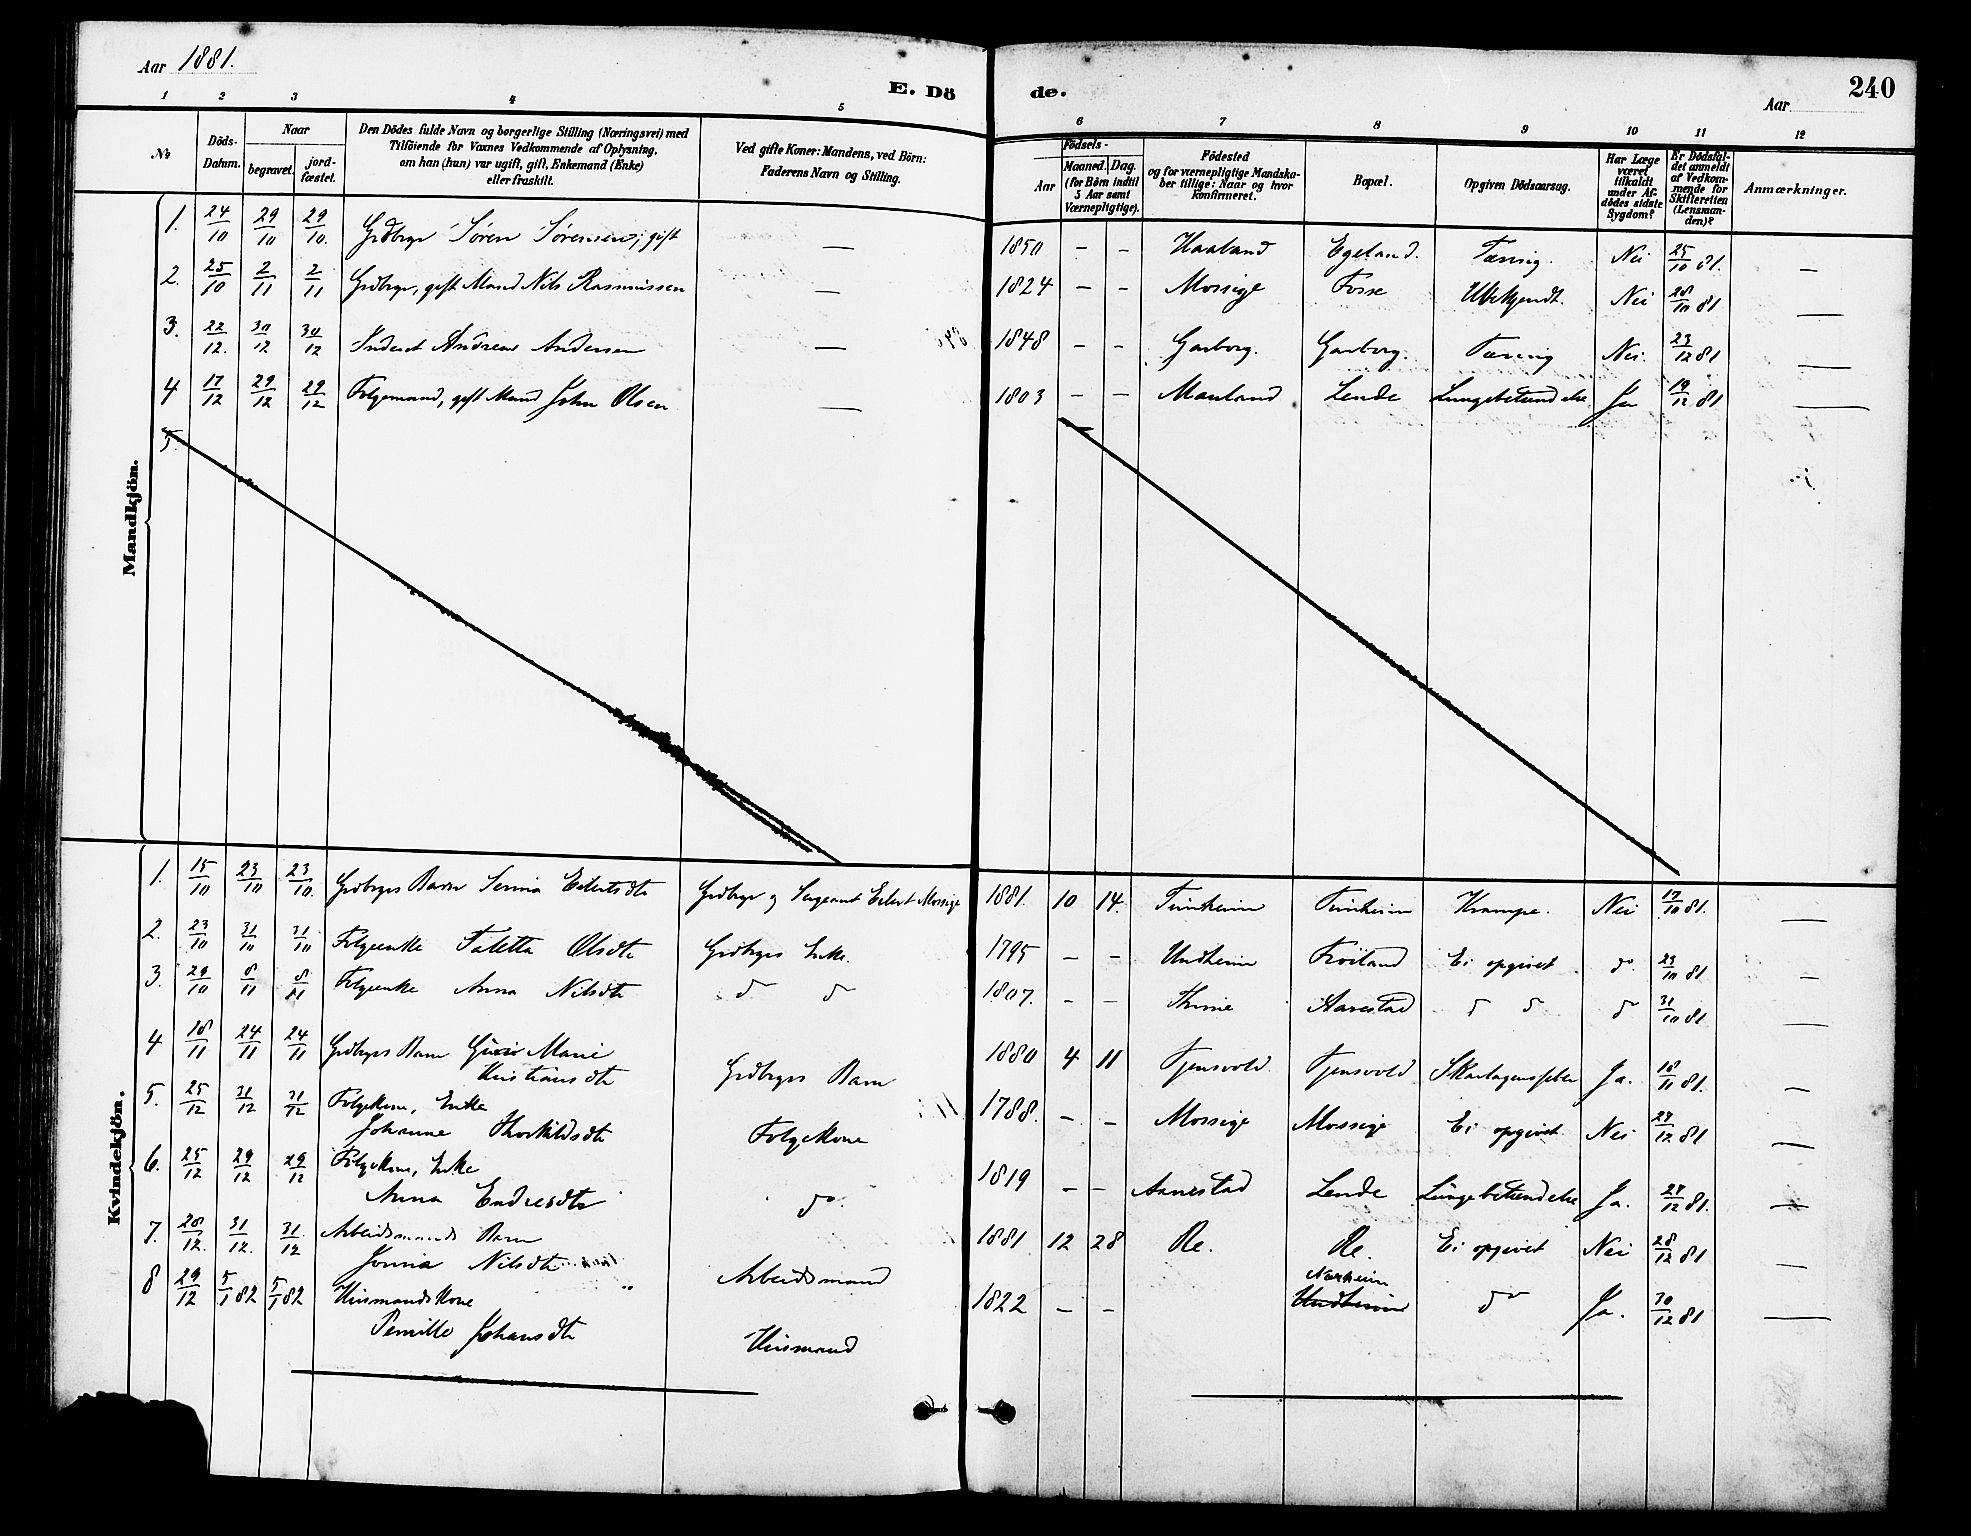 Aar 1881.
E. Dö de.
Aar
240
1 2 3 4 5 6 7 8 9 10 11 12
No
Döds-Datum.
Naar
begravet.
jord-fæstet.
Den Dödes fulde Navn og borgerlige Stilling (Næringsvei) med
Tilföiende for Voxnes Vedkommende af Oplysning,
om han (hun) var ugift, gift, Enkemand (Enke)
eller fraskilt.
Ved gifte Koner: Mandens, ved Börn:
Faderens Navn og Stilling.
Födsels-
Aar
Maaned. Dag.
(for Börn indtil
5 Aar samt
Værnepligtige).
Födested
og for værnepligtige Mandska-
ber tillige: Naar og hvor
konfirmeret.
Bopæl.
Opgiven Dödsaarsag.
Har Læge
været
tilkaldt
under Af-
dödes sidste
Sygdom?
Er Dödsfal-
det anmeldt
af Vedkom-
mende for
Skifteretten
(Lensman-
den)?
Anmærkninger.
Mandkjön.
1. 24/10 29/10 29/10. Grdbrgr Sören Sörensen, gift — 1850 – – Haaland Egeland. Tæring. Nei 25/10 81. —
2. 25/10 2/11 2/11 Grdbrgr, gift Mand Nils Rasmussen — 1824 – – Mossige Fosse Ubekjendt. Nei 28/10 81 —
3. 22/12. 30/12 30/12 Inderst Andreas Andersen — 1848 – – Garborg. Garborg. Tæring Nei. 23/12 81 —
4 17/12 29/12 29/12 Folgemand, gift Mand John Olsen — 1803 – – Mauland Lende Lungebetændelse Ja 19/12 81 —
5.
Kvindekjön.
1. 15/10 23/10 23/10. Grdbrgrs Barn Serina Eilertsdtr Grdbrgr og Sergeant Eilert Mossige 1881. 10 14. Tunheim Tunheim Krampe. Nei 17/10 81. —
2. 23/10 31/10 31/10 Folgeenke Taletta Olsdtr Grdbrgrs Enke. 1795 – – Undheim Fröiland Ei opgivet do. 23/10 81 —
3. 29/10 8/11 8/11 Folgeenke Anna Nilsdtr do do 1807. – – Thime Aarestad do do do 31/10 81 —
4 18/11 24/11 24/11 Grdbrgrs Barn Marie
Kristiansdtr Grdbrgrs Barn 1880 4 11 Tjensvold Tjensvold Skarlagensfeber Ja. 18/11 81. —
5. 25/12 31/12 31/12 Folgekone, Enke
Johanne Thorkildsdtr Folgekone 1788. – – Mossige Mossige Ei opgivet Nei 27/12 81 —
6. 25/12 29/12 29/12 Folgekone, Enke
Anna Endresdtr do. 1819 – – Aarestad Lende Lungebetændelse Ja. 27/12 81. —
7. 28/12. 31/12. 31/12 Arbeidsmands Barn
Jonna Nilsdtr Arbeidsmand 1881 12 28 Re. Re. Ei opgivet Nei 28/12 81 —
8 29/12 5/1 82 5/1 82 Husmandskone
Pernille Johansdtr Husmand 1822 – – Norheim
Undheim do Ja. 30/12 81 —